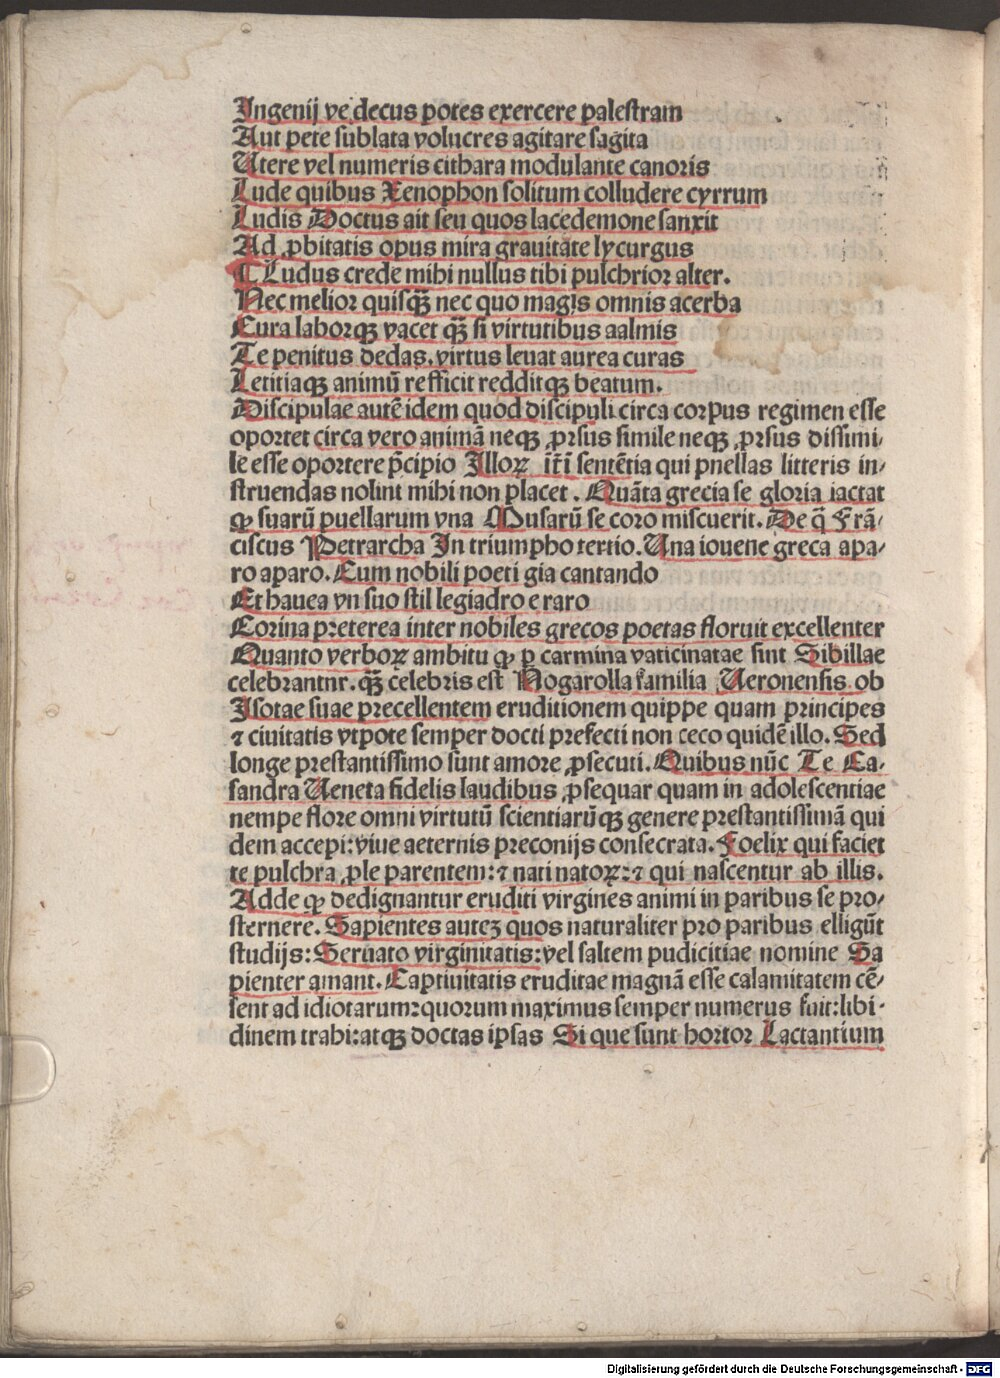 Ingenij ve decus potes exercere palestram
Aut pete sublata volucres agitare sagita
Utere vel numeris cithara modulante canoris
Lude quibus Xenophon solitum colludere cyrrum
Ludis Doctus ait seu quos lacedemone sanxit
Ad ꝓbitatis opus mira grauitate lycurgus
¶ Ludus crede mihi nullus tibi pulchrior alter.
Nec melior quisqꝫ̄ nec quo magis omnis acerba
Cura laborqꝫ vacet qꝫ̄ si virtutibus aalmis
Te penitus dedas. virtus leuat aurea curas
Letitiaqꝫ animū refficit redditqꝫ beatum.
Discipulae autē idem quod discipuli circa corpus regimen esse
oportet circa vero animā neqꝫ ꝓrsus simile neqꝫ ꝓrsus dissimi-
le esse oportere p̄cipio Illoꝝ it̄i sentētia qui pnellas litteris in-
struendas nolint mihi non placet. Quāta grecia se gloria iactat
ꝙ suarū puellarum vna Musarū se coro miscuerit. De q̄ Frā-
ciscus Petrarcha In triumpho tertio. Una iouene greca apa-
ro aparo. Cum nobili poeti gia cantando
Et hauea vn suo stil legiadro e raro
Corina preterea inter nobiles grecos poetas floruit excellenter
Quanto verboꝝ ambitu ꝙ ꝑ carmina vaticinatae sint Sibillae
celebrantnr. qꝫ̄ celebris est Nogarolla familia Ueronensis ob
Isotae suae precellentem eruditionem quippe quam principes
⁊ ciuitatis vtpote semper docti prefecti non ceco quidē illo. Sed
longe prestantissimo sunt amore ꝓsecuti. Quibus nūc Te Ca-
sandra Ueneta fidelis laudibus ꝓsequar quam in adolescentiae
nempe flore omni virtutū scientiarūqꝫ genere prestantissimā qui
dem accepi: viue aeternis preconijs consecrata. Foelix qui faciet
te pulchra ꝓle parentem: ⁊ nati natoꝝ: ⁊ qui nascentur ab illis.
Adde ꝙ dedignantur eruditi virgines animi in paribus se pro-
sternere. Sapientes auteꝫ quos naturaliter pro paribus elligūt
studijs: Seruato virginitatis: vel saltem pudicitiae nomine Sa
pienter amant. Captiuitatis eruditae magnā esse calamitatem cē-
sent ad idiotarum: quorum maximus semper numerus fuit: libi-
dinem trahi: atqꝫ doctas ipsas Si que sunt hortor Lactantium
Digitalisierung gefördert durch die Deutsche Forschungsgemeinschaft - DFG